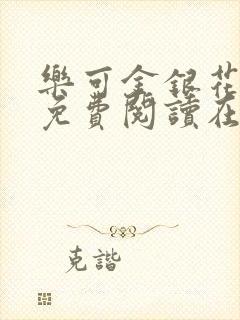 樂可金銀花
免費閱讀在
克諧